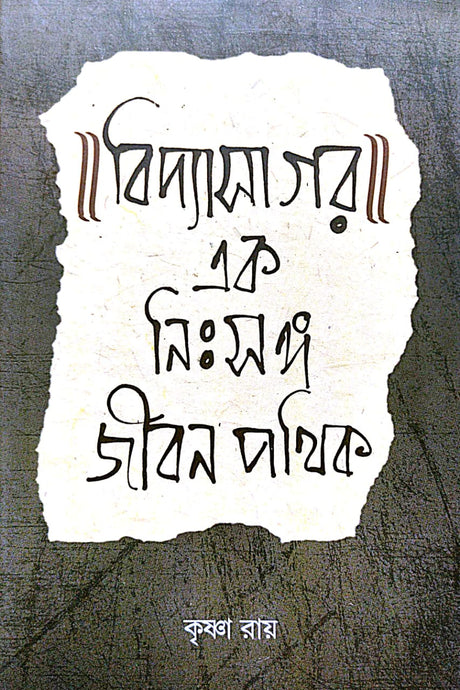 ॥বিদ্যাসাগর॥
এক
নিঃসঙ্গ
জীবন পথিক
কৃষ্ণা রায়